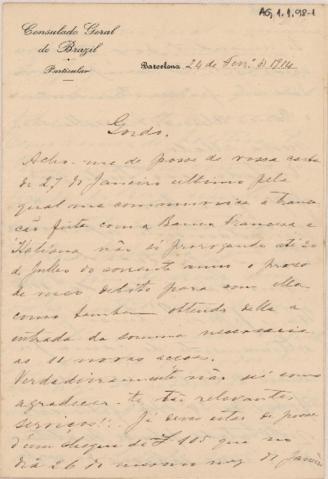 AG, 1.1.98-1
Consulado Geral
do Brazil
Particular
Barcelona, 24 de Fev.º de 1914
Gordo.
Acho-me de posse de vossa carta
de 27 de Janeiro ultimo pela
qual me communica a transac
ção feita com a Banca Franceza e
Italiana não só prorogando até 20
de Julho do corrente anno o prazo
de meu debito para com ella
como tambem obtendo della a
entrada da somma necessaria
as 11 novas acções.
Verdadeiramente não sei como
agradecer-te tão relevantes
serviços! Já deves estar de posse
d'um cheque de £ 105 que no
dia 26 do mesmo mez de Janeiro